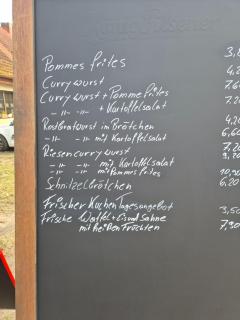 Pommes frites 3,
Currywurst 4,2
Currywurst + Pomme frites 7,6
-"- -"- + Kartoffelsalat 7,2
Rostbratwurst im Brötchen 4,20
-"- -"- mit Kartoffelsalat 6,6
Riesencurrywurst 7,20
-"- -"- mit Kartoffelsalat 9,20
-"- -"- mit Pommes frites 10,
Schnitzelbrötchen 6,20
Frischer Kuchen Tagesangebot 3,50
Frische Waffel + Eis und Sahne 7,90
mit heißen Früchten